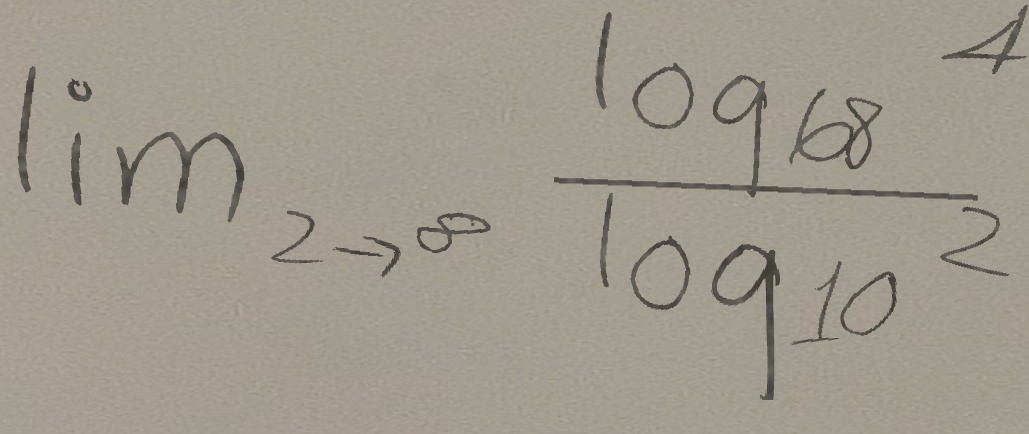 lim 2→∞ log68 4
log10 2